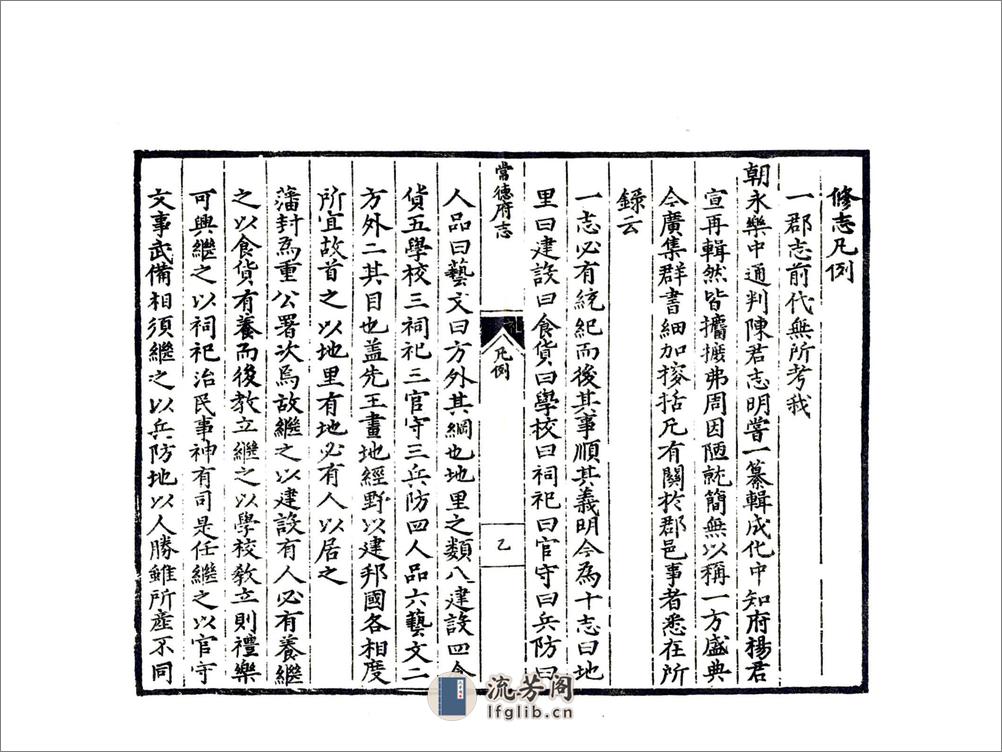 修志凡例
一郡志前代無所考我
朝永樂中通判陳君志明嘗一纂輯成化中知府楊君
宣再輯然皆攟摭弗周因陋就簡無以稱一方盛典
今廣集群書細加檃括凡有關於郡邑事者悉在所
錄云
一志必有統紀而後其事順其義明今為十志曰地
里曰建設曰食貨曰學校曰祠祀曰官守曰兵防曰
常德府志
凡例
乙
人品曰藝文曰方外其綱也地里之類八建設四食
貨五學校三祠祀三官守三兵防四人品六藝文二
方外二其目也盖先王畫地經野以建邦國各相度
所宜故首之以地里有地必有人以居之
藩封為重公署次焉故繼之以建設有人必有養繼
之以食貨有養而後教立繼之以學校教立則禮樂
可興繼之以祠祀治民事神有司是任繼之以官守
文事武備相須繼之以兵防地以人勝雖所産不同
流芳阁
lfglib.cn